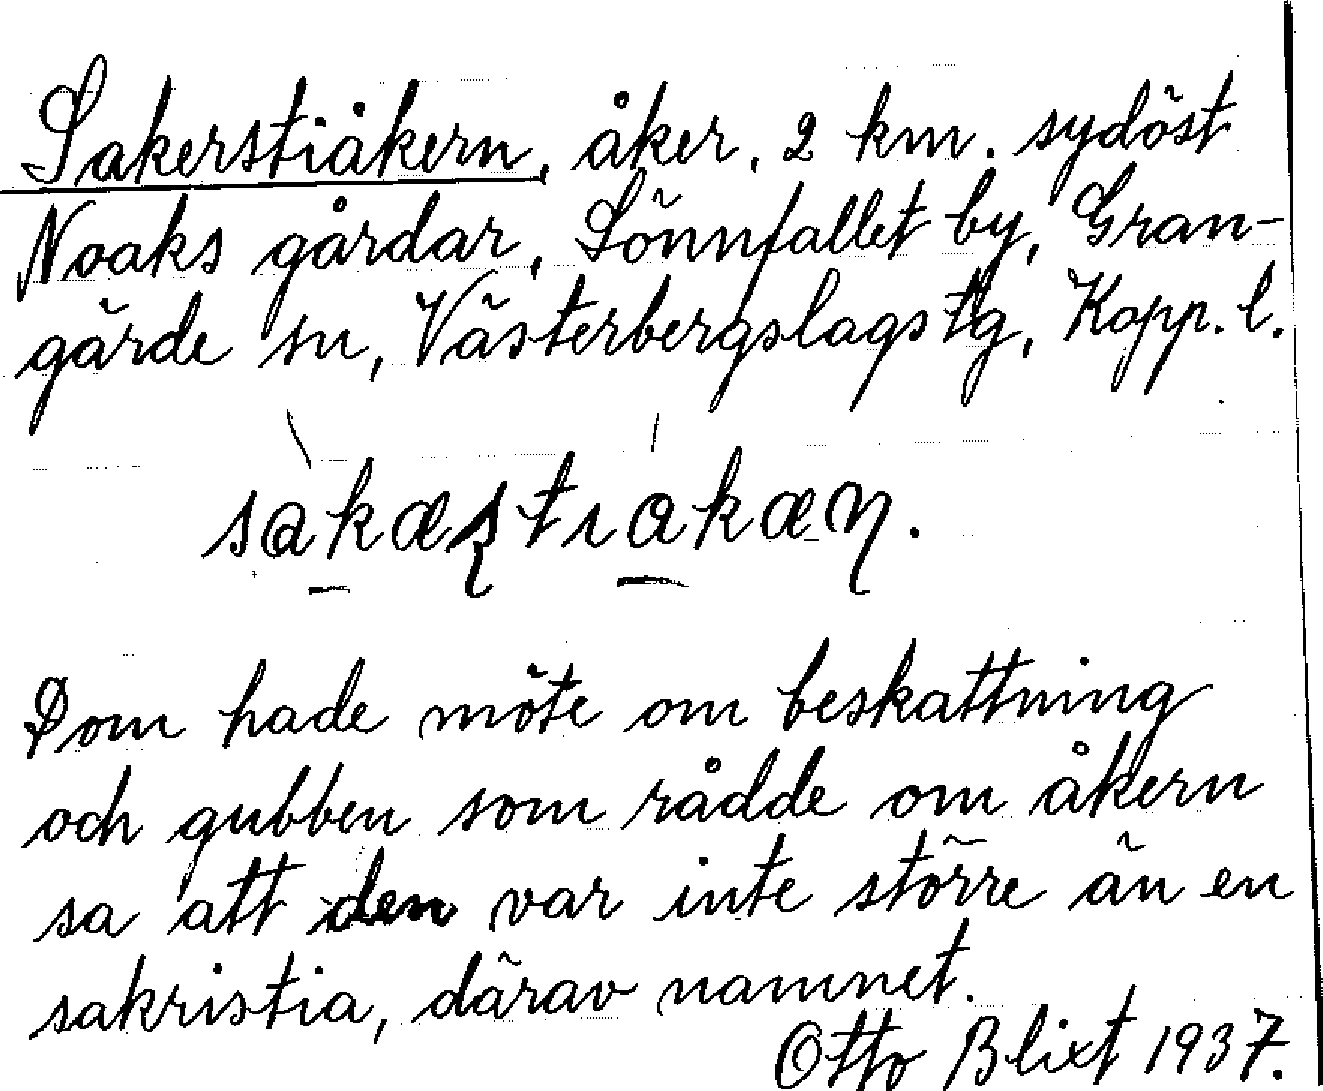 Sakerstiåkern, åker, 2 km. sydöst
Noaks gårdar, Sönnfallet by, Gran-
gärde sn, Västerbergslags tg, Kopp. l.
sakæʂtıakæɳ.
Dom hade möte om beskattning
och gubben som rådde om åkern
sa att den var inte större än en
sakristia, därav namnet.
Otto Blixt 1937.